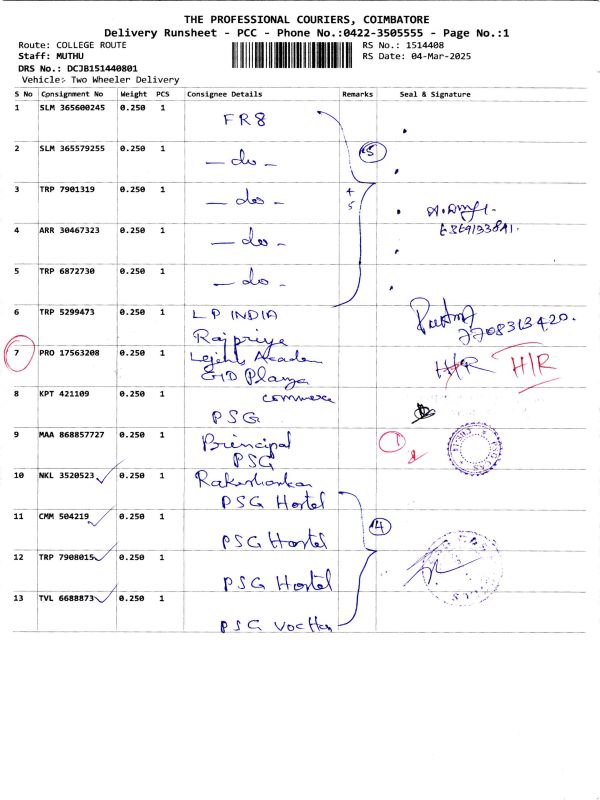 THE PROFESSIONAL COURIERS, COIMBATORE
Delivery Runsheet - PCC - Phone No.:0422-3505555 - Page No.:1
Route: COLLEGE ROUTE RS No.: 1514408
Staff: MUTHU RS Date: 04-Mar-2025
DRS No.: DCJB151440801
Vehicle:- Two Wheeler Delivery
S No Consignment No Weight PCS Consignee Details Remarks Seal & Signature
1 SLM 365600245 0.250 1 FR8
5
2 SLM 365579255 0.250 1 - do -
3 TRP 7901319 0.250 1 - do - 4 5
4 ARR 30467323 0.250 1 - do -
5 TRP 6872730 0.250 1 - do -
6 TRP 5299473 0.250 1 LP INDIA
Rajpriya
7708313420.
7 PRO 17563208 0.250 1
H/R H/R
8 KPT 421109 0.250 1 commerce
PSG
9 MAA 868857727 0.250 1 Brincipal
PSG
1
10 NKL 3520523 0.250 1
PSG Hostel
11 CMM 504219 0.250 1 PSG Hostel
4
12 TRP 7908015 0.250 1 PSG Hostel
13 TVL 6688873 0.250 1 PSG